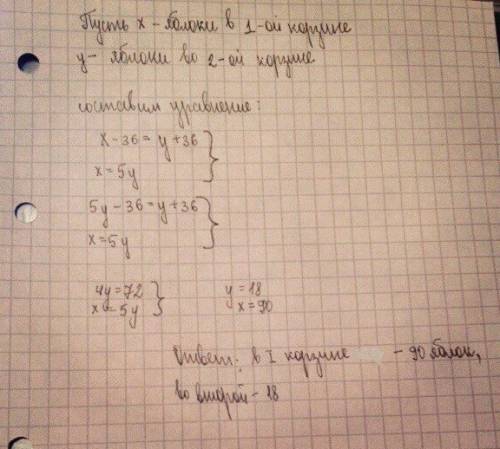 Пусть x - яблоки в 1-ой корзине
y - яблоки во 2-ой корзине
составим уравнение:
x - 36 = y + 36
x = 5y
5y - 36 = y + 36
x = 5y
4y = 72
x = 5y
y = 18
x = 90
Ответ: в I корзине - 90 яблок,
во второй - 18